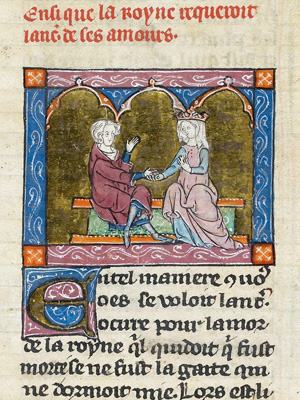 Ensi que la royne requeroit
lanc̄. de ses amours.
Enitel maniere quoꝯ
oes se voloit lanc̄.
ocirre pour lamor
de la royne q̄l quidoit q̄ fust
morte se ne fust la gaite qui
ne dormoit mie. Lors est li